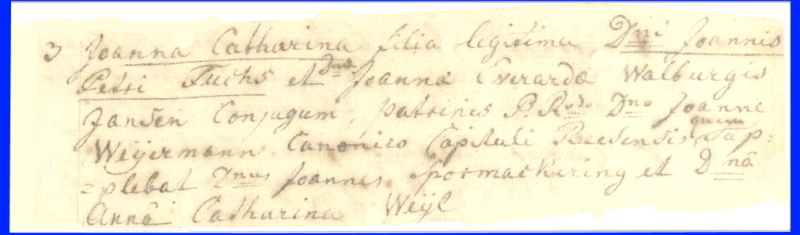 3 Joanna Catharina filia legitima Dni Joannis
Petri Fuchs et Dnæ Joannæ Everardæ Walburgis
Jansen Conjugum, patrinus P. Rdo Dno Joanne
Weyermann Canonico Capituli Reesensis, quem sup:
=plebat Dnus Joannes Spormackering et Dnâ
Annâ Catharina Weyl